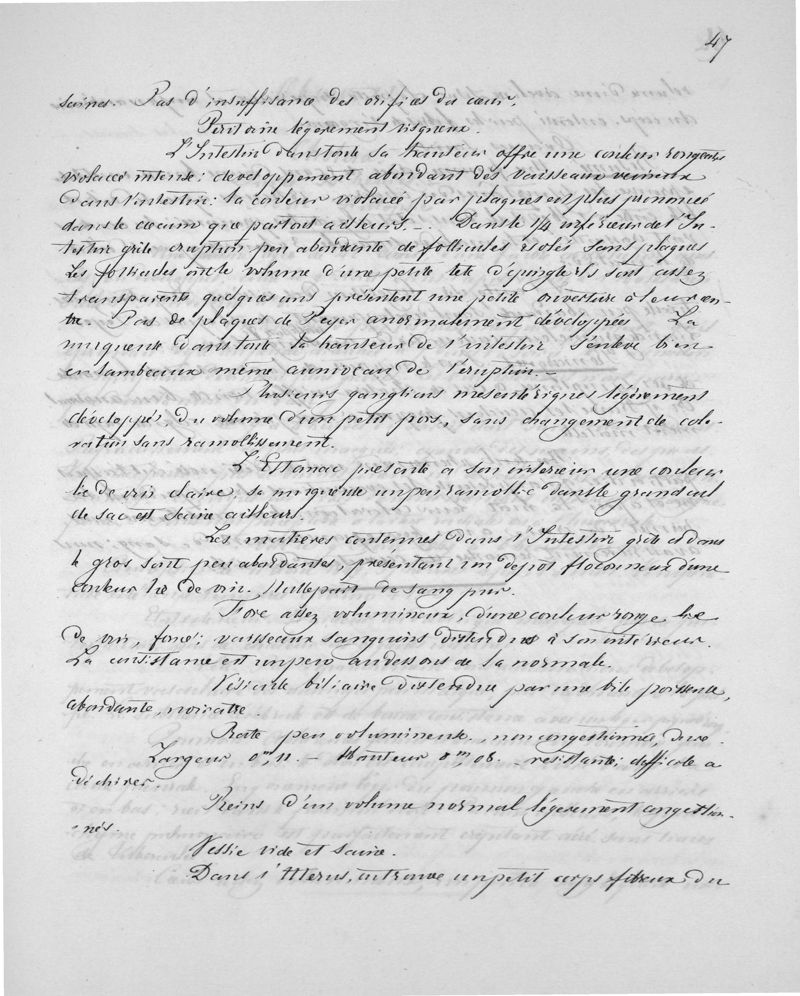 47
saines. Pas d'insuffisance des orifices du cœur.
Péritoine légèrement visqueux.
L'Intestin dans toute sa hauteur offre une couleur rougeâtre
violacée intense; développement abondant des vaisseaux veineux
dans l'intestin: la couleur violacée par plaques est plus prononcée
dans le cœcum que partout ailleurs. — Dans le 1/4 inférieur de l'In-
testin grêle eruption peu abondante de follicules isolés sans plaques
Les follicules ont le volume d'une petite tête d'épingle Ils sont assez
transparents quelques uns présentent une petite ouverture à leur cen-
tre. Pas de plaques de Peyer anormalement développées La
muqueuse dans toute la hauteur de l'intestin s'enlève bien
en lambeaux même au niveau de l'éruption. —
Plusieurs ganglions mésentériques légèrement
développés, du volume d'un petit pois, sans changement de colo-
ration sans ramollissement.
L'Estomac présente à son intérieur une couleur
lie de vin claire, sa muqueuse un peu ramollie dans le grand cul
de sac est saine ailleurs.
Les matières contenues dans l'Intestin grêle et dans
le gros sont peu abondantes, présentant un dépôt floconneux d'une
couleur lie de vin. Nulle part de sang pur.
Foie assez volumineux, d'une couleur rouge lie
de vin, foncé; vaisseaux sanguins distendus à son intérieur.
La consistance est un peu au dessous de la normale.
Vésicule biliaire distendue par une bile poisseuse,
abondante, noirâtre.
Rate peu volumineuse, non congestionnée, dure.
Largeur 0m,11. — Hauteur 0m,08. — résistante; difficile à
déchirer.
Reins d'un volume normal légèrement congestion-
-nés.
Vessie vide et saine.
Dans l'Uterus, on trouve un petit corps fibreux du